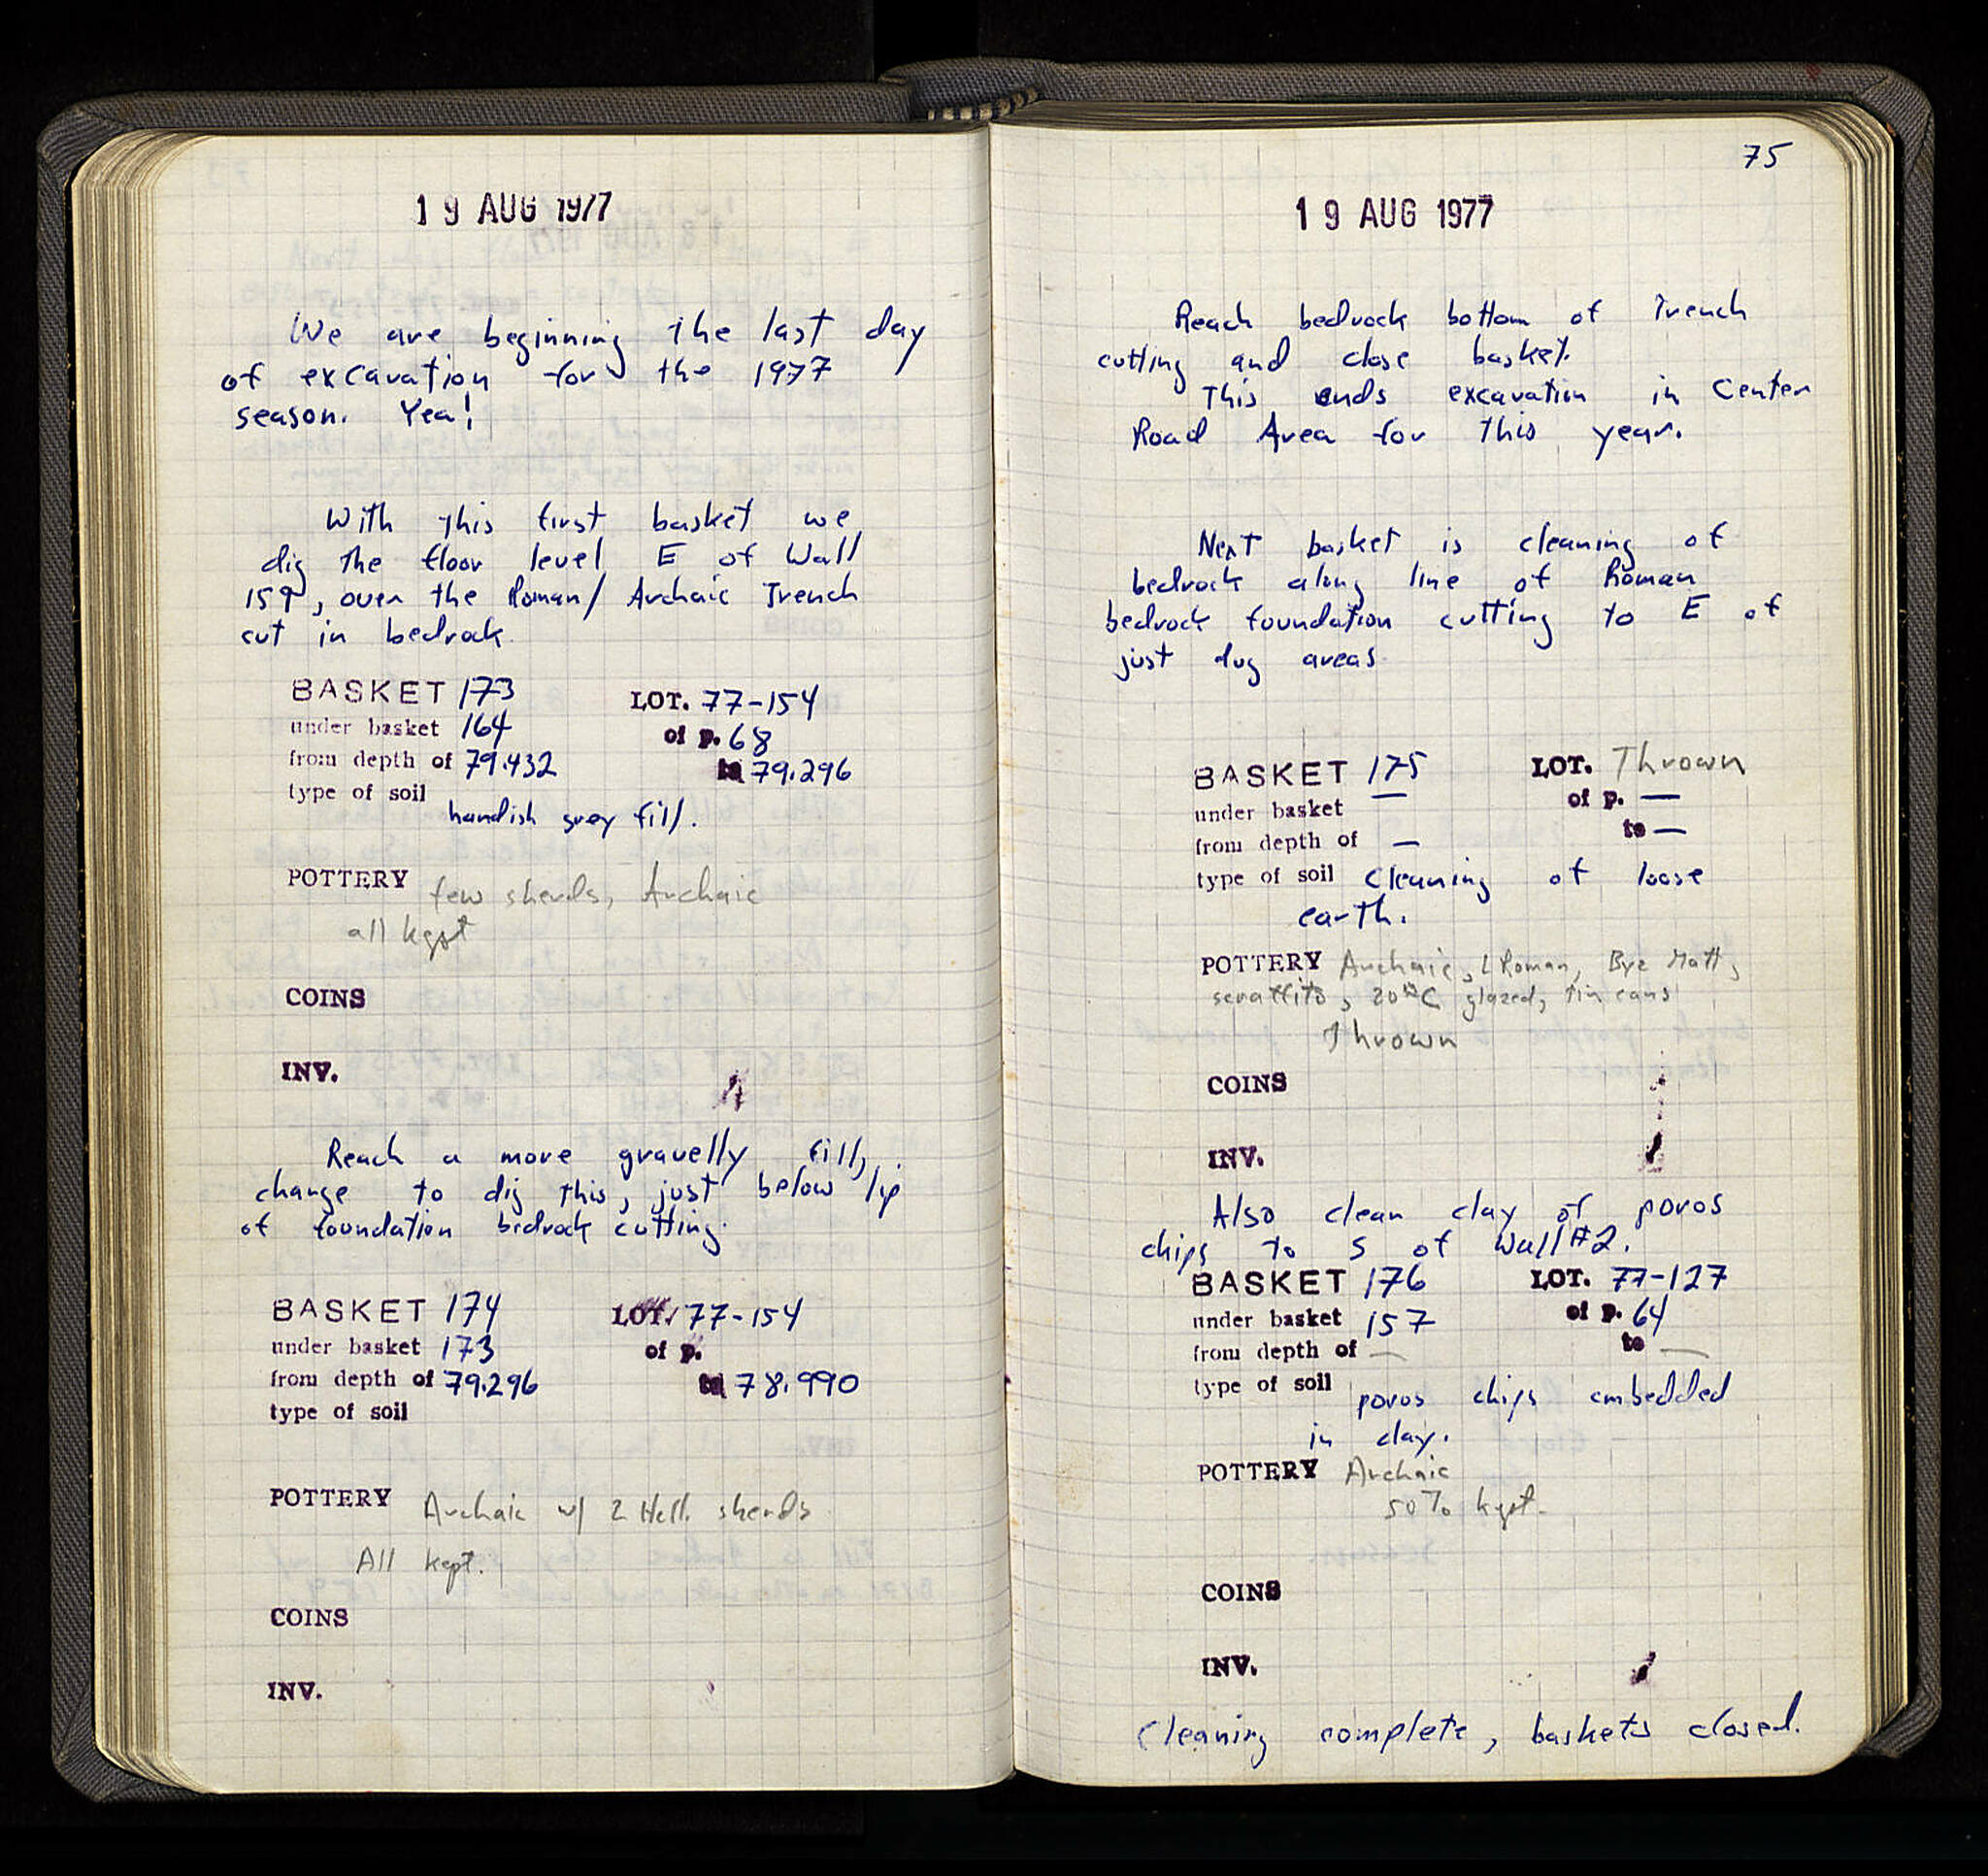 19 AUG 1977
We are beginning the last day
of excavation for the 1977
season. Yea!
With this first basket we
dig the floor level E of Wall
159, over the Roman/Archaic Trench
cut in bedrock.
BASKET 173 LOT. 77-154
under basket 164 of p. 68
from depth of 79.432 to 79.296
type of soil
hardish grey fill.
POTTERY few sherds, Archaic
all kept
COINS
INV.
Reach a more gravelly fill,
change to dig this, just below lip
of foundation bedrock cutting.
BASKET 174 LOT. 77-154
under basket 173 of p.
from depth of 79.296 to 78.990
type of soil
POTTERY Archaic w/ 2 Hell. sherds
All kept.
COINS
INV.
75
19 AUG 1977
Reach bedrock bottom of Trench
cutting and close basket.
This ends excavation in Center
Road Area for this year.
Next basket is cleaning of
bedrock along line of Roman
bedrock foundation cutting to E of
just dug areas.
BASKET 175 LOT. Thrown
under basket — of p. —
from depth of — to —
type of soil Cleaning of loose
earth.
POTTERY Archaic, L Roman, Byz Matt,
scraffito, 20th C glazed, tin cans
Thrown
COINS
INV.
Also clean clay of poros
chips to S of Wall #2.
BASKET 176 LOT. 77-127
under basket 157 of p. 64
from depth of — to —
type of soil poros chips embedded
in clay.
POTTERY Archaic
50% kept.
COINS
INV.
Cleaning complete, baskets closed.